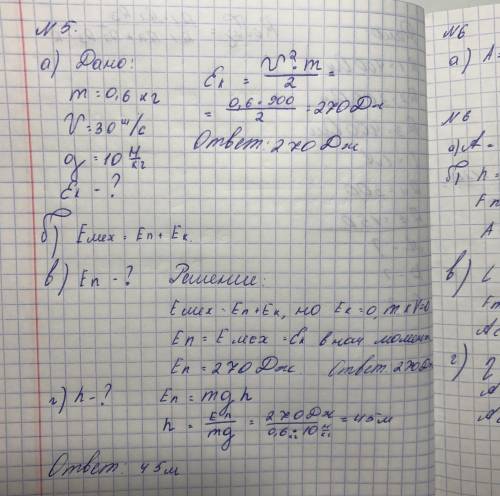 №5.
а) Дано:
m = 0,6 кг
V = 30 м/с
g = 10 Н/кг
Eк - ?
Eк = V²·m/2 =
= 0,6 · 900/2 = 270 Дж
Ответ: 270 Дж
б) Eмех = Eп + Eк.
в) Eп - ?
Решение:
Eмех = Eп + Eк, но Eк = 0, т к V=0
Eп = Eмех = Eк в нач момент
Eп = 270 Дж. Ответ: 270 Дж
г) h - ?
Eп = mgh
h = Eп/mg = 270 Дж/0,6 кг · 10 Н/кг = 45 м
Ответ: 45 м
№6
а) A =
№6
а) A =
б) h =
Fт
A
в)
г)